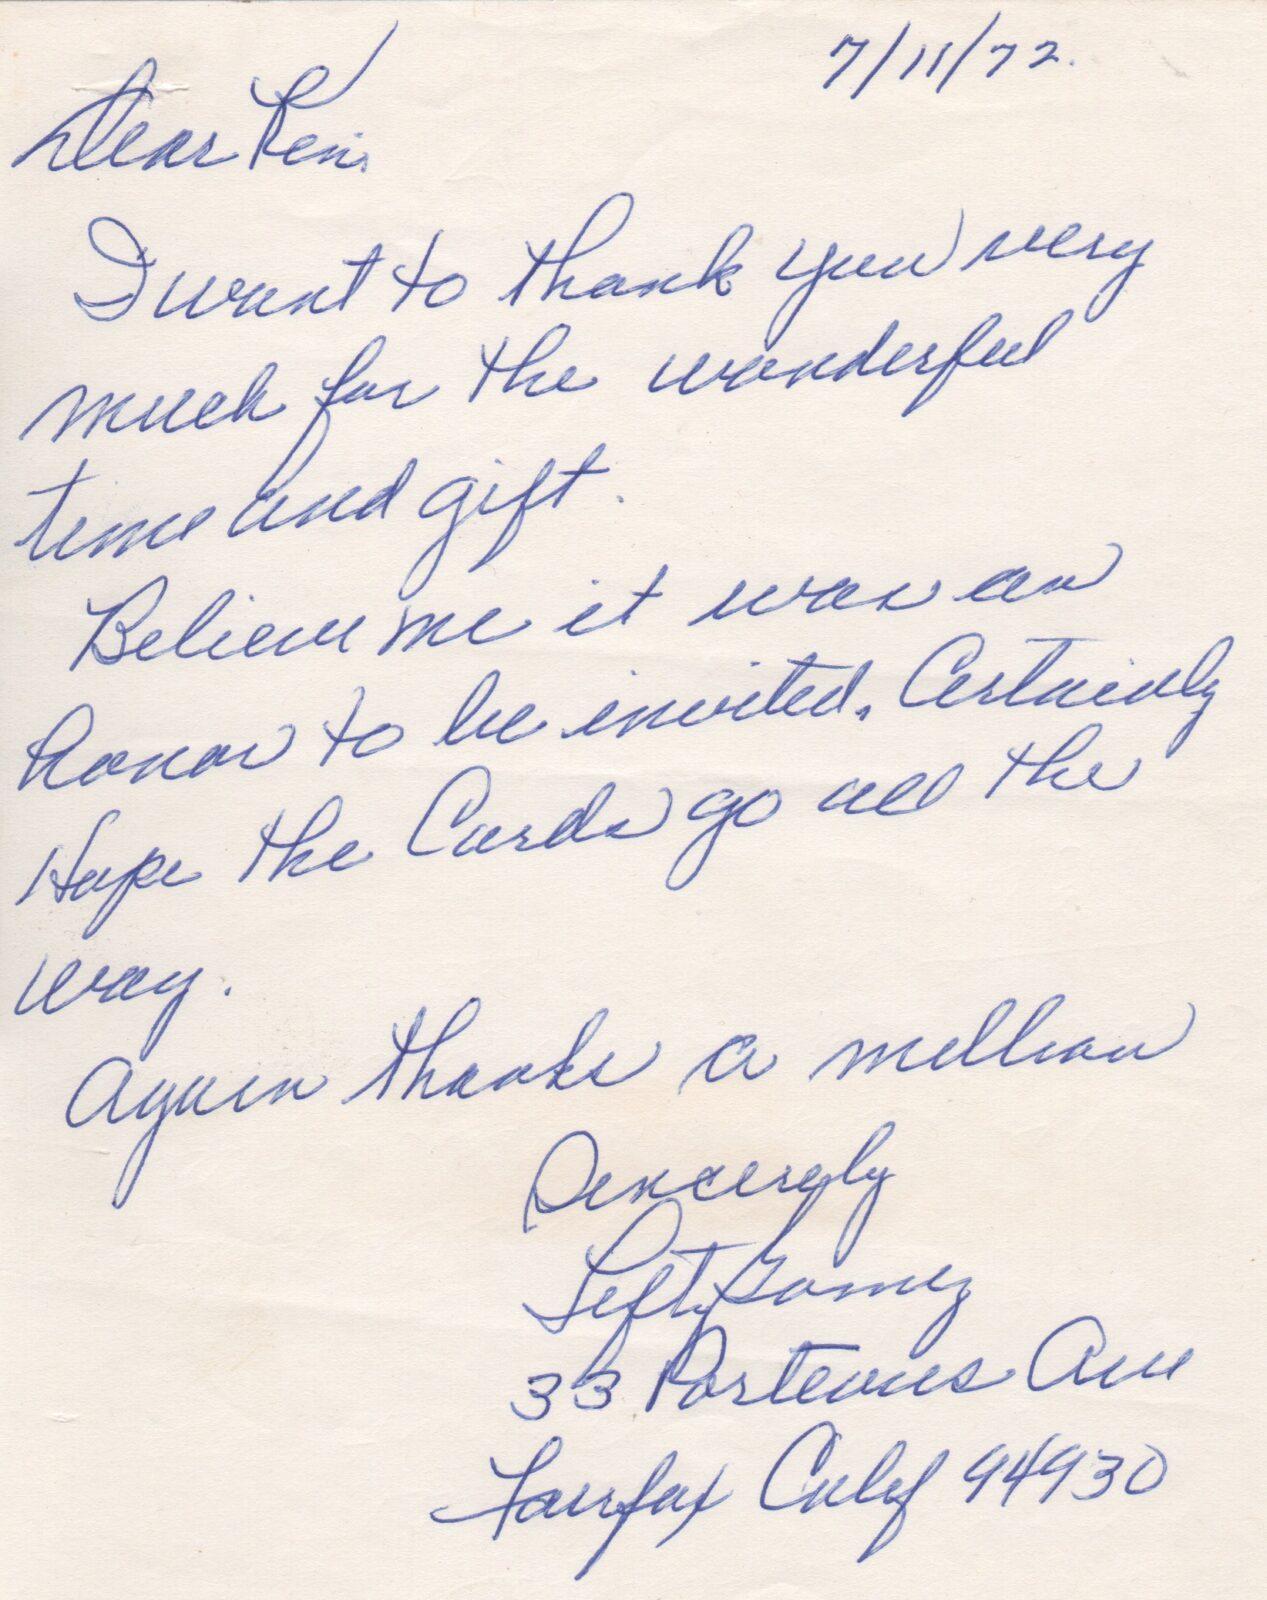 7/11/72.
Dear Ken,
I want to thank you very
much for the wonderful
time and gift.
Believe me it was an
honor to be invited. Certainly
Hope the Cards go all the
way.
Again thanks a million
Sincerely
Lefty Gomez
33 Porteous Ave
Fairfax Calif 94930